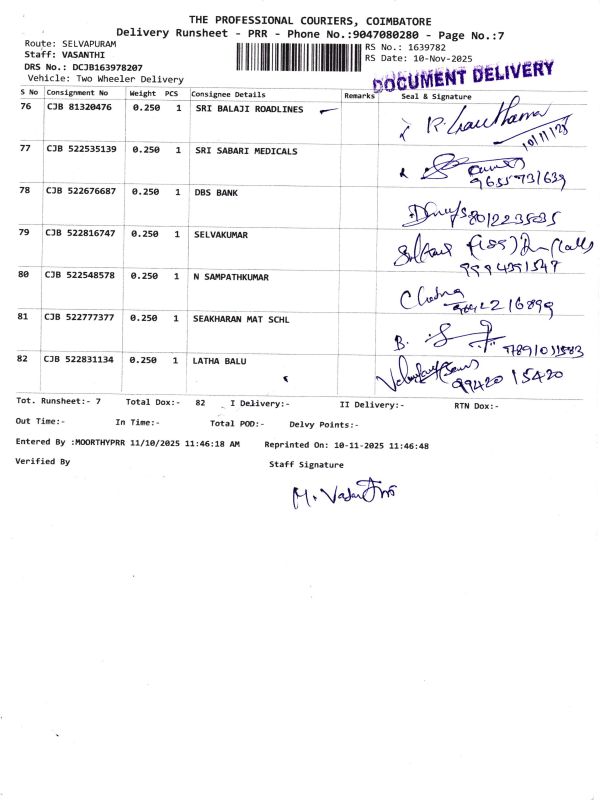 THE PROFESSIONAL COURIERS, COIMBATORE
Delivery Runsheet - PRR - Phone No.:9047080280 - Page No.:7
Route: SELVAPURAM
Staff: VASANTHI
DRS No.: DCJB163978207
Vehicle: Two Wheeler Delivery
RS No.: 1639782
RS Date: 10-Nov-2025
DOCUMENT DELIVERY
S No Consignment No Weight PCS Consignee Details Remarks Seal & Signature
76 CJB 81320476 0.250 1 SRI BALAJI ROADLINES
10/11/25
77 CJB 522535139 0.250 1 SRI SABARI MEDICALS
9655731639
78 CJB 522676687 0.250 1 DBS BANK
8012235035
79 CJB 522816747 0.250 1 SELVAKUMAR
9994391547
80 CJB 522548578 0.250 1 N SAMPATHKUMAR
81 CJB 522777377 0.250 1 SEAKHARAN MAT SCHL
B.
82 CJB 522831134 0.250 1 LATHA BALU
99420 15420
Tot. Runsheet:- 7 Total Dox:- 82 I Delivery:- II Delivery:- RTN Dox:-
Out Time:- In Time:- Total POD:- Delvy Points:-
Entered By :MOORTHYPRR 11/10/2025 11:46:18 AM Reprinted On: 10-11-2025 11:46:48
Verified By Staff Signature
M.